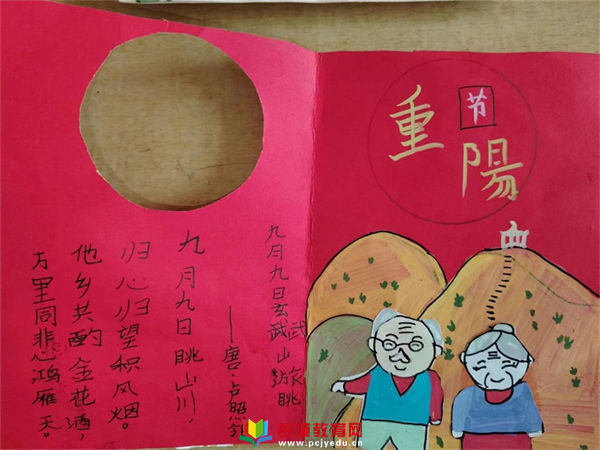 重陽
节
九月九日玄武山旅眺
——唐·卢照邻
九月九日眺山川，
归心归望积风烟。
他乡共酌金花酒，
万里同悲鸿雁天。
教育网
www.pcjyedu.com